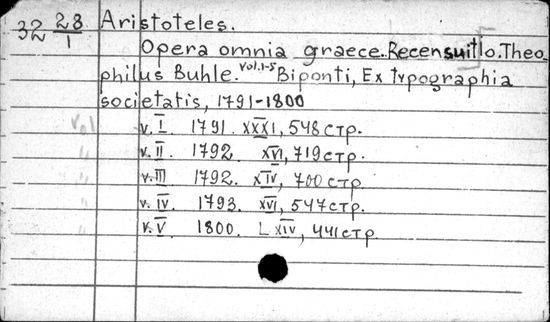 32 28/1 Aristoteles.
Opera omnia graece. Recensuit Jo. Theo-
philus Buhle. Vol. 1-5 Biponti, Ex typographia
societatis, 1791-1800
vol v. I. 1791. XXXI, 548 стр.
" v. II. 1792. XVI, 719 стр.
" v. III 1792. XIV, 700 стр.
" v. IV. 1793. XVI, 547 стр.
" v. V. 1800. LXIV, 441 стр.